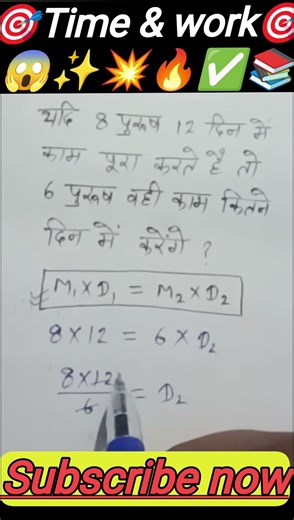 Time & work
यदि 8 पुरुष 12 दिन में
काम पूरा करते है तो
6 पुरुष वही काम कितने
दिन में करेंगे ?
M₁ × D₁ = M₂ × D₂
8 × 12 = 6 × D₂
8 × 12 / 6 = D₂
Subscribe now